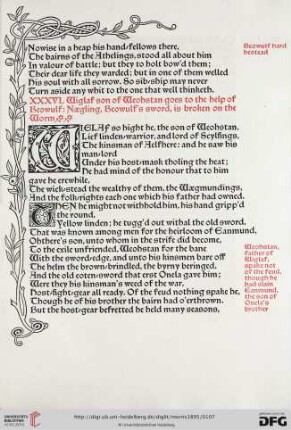 Nowise in a heap his hand-fellows there,
The bairns of the Athelings, stood all about him
In valour of battle; but they to holt bow'd them;
Their dear life they warded; but in one of them welled
His soul with all sorrow. So sib-ship may never
Turn aside any whit to the one that well thinketh.
Beowulf hard bestead
XXXVI. Wiglaf son of Weohstan goes to the help of
Beowulf: Nægling, Beowulf's sword, is broken on the
Worm.
WIGLAF so hight he, the son of Weohstan,
Lief linden-warrior, and lord of Scylfings,
The kinsman of Aelfhere: and he saw his
man-lord
Under his host-mask tholing the heat;
He had mind of the honour that to him
gave he erewhile,
The wick-stead the wealthy of them, the Wægmundings,
And the folk-rights each one which his father had owned.
THEN he might not withhold him, his hand gripp'd
the round,
Yellow linden; he tugg'd out withal the old sword,
That was known among men for the heirloom of Eanmund,
Ohthere's son, unto whom in the strife did become,
To the exile unfriended, Weohstan for the bane
With the sword-edge, and unto his kinsmen bare off
The helm the brown-brindled, the byrny beringed,
And the old eoten-sword that erst Onela gave him;
Were they his kinsman's weed of the war,
Host-fight-gear all ready. Of the feud nothing spake he,
Though he of his brother the bairn had o'erthrown.
But the host-gear befretted he held many seasons,
Weohstan,
father of
Wiglaf,
spake not
of the feud,
though he
had slain
Eanmund,
the son of
Onela's
brother
UNIVERSITÄTS-
BIBLIOTHEK
HEIDELBERG
http://digi.ub.uni-heidelberg.de/diglit/morris1895/0107
© Universitätsbibliothek Heidelberg
DFG